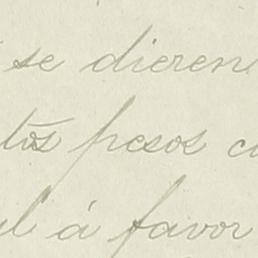 se dieren
tos pesos c
l á favor